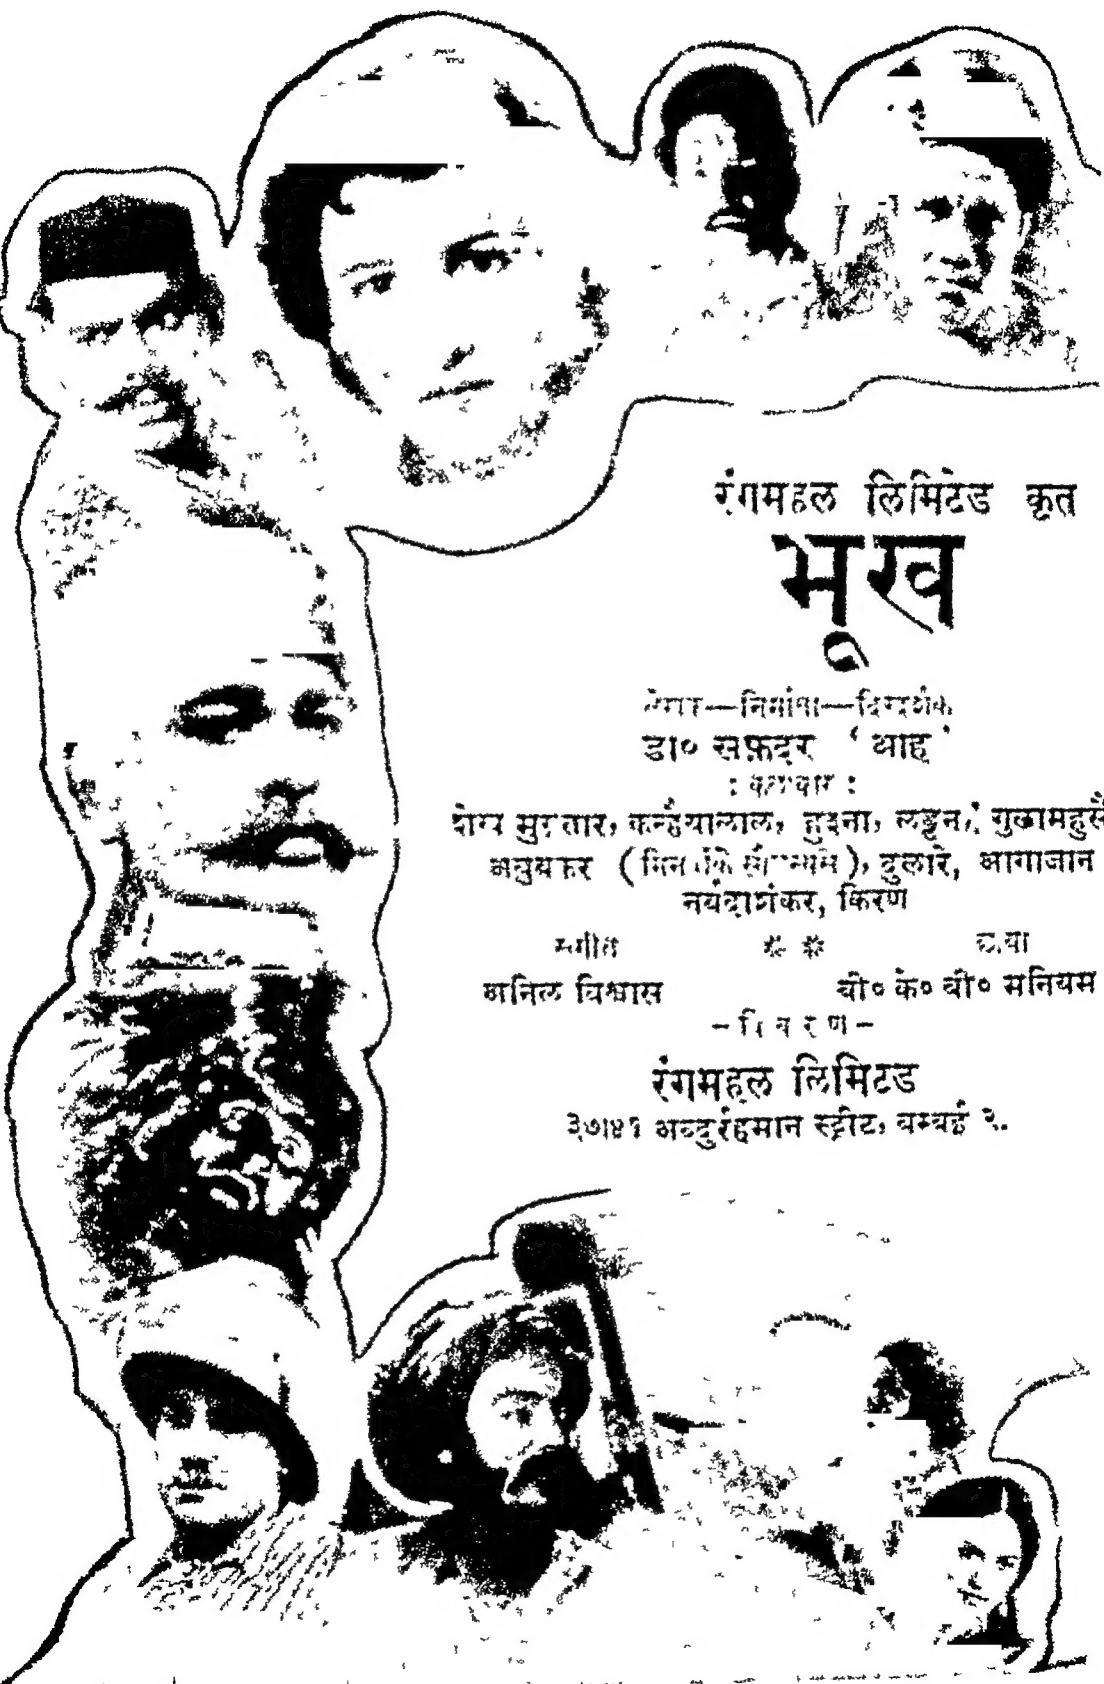 रंगमहल लिमिटेड कृत
भूख
निर्माता—दिग्दर्शक
डा० सफ़दर 'आह'
: कलाकार :
शेख मुख्तार, कन्हैयालाल, हुस्ना, लड्डन, गुलामहुसै
अबुबकर ( ), दुलारे, आगाजान
नर्बदाशंकर, किरण
संगीत छाया
अनिल विश्वास वी० के० बी० मनियम
रंगमहल लिमिटेड
३७।४१ अब्दुर्रहमान स्ट्रीट, बम्बई २.